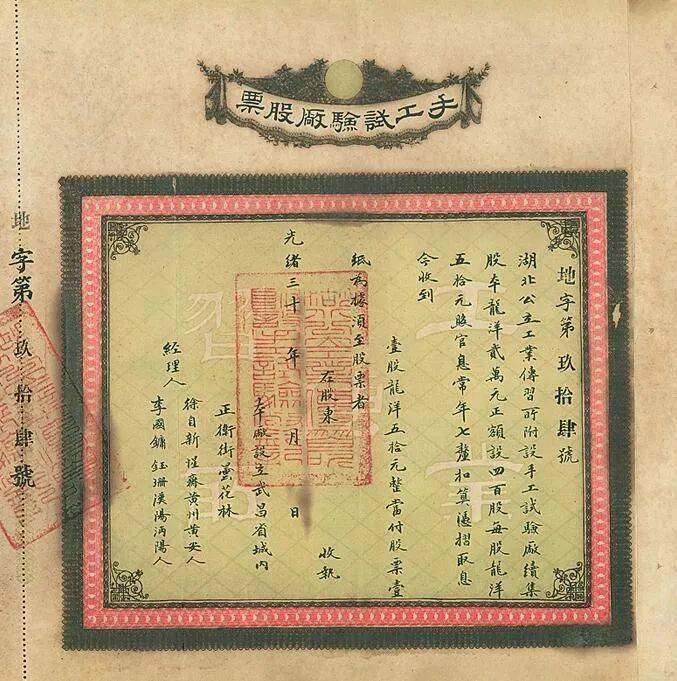 手工試驗廠股票
地字第玖拾肆號
湖北公立工業傳習所附設手工試驗廠續集
股本龍洋貳萬元正額設四百股每股龍洋
五拾元股官息常年七釐扣算憑摺取息
今收到
壹股龍洋五拾元整當付股票壹
紙為據須至股票者
右股東
收執
光緒三十年月日
本廠設立武昌省城內
正衛街曇花林
經理人
徐自新
黃州黃安人
李國鏞
鈺珊漢陽沔陽人
地字第玖拾肆號